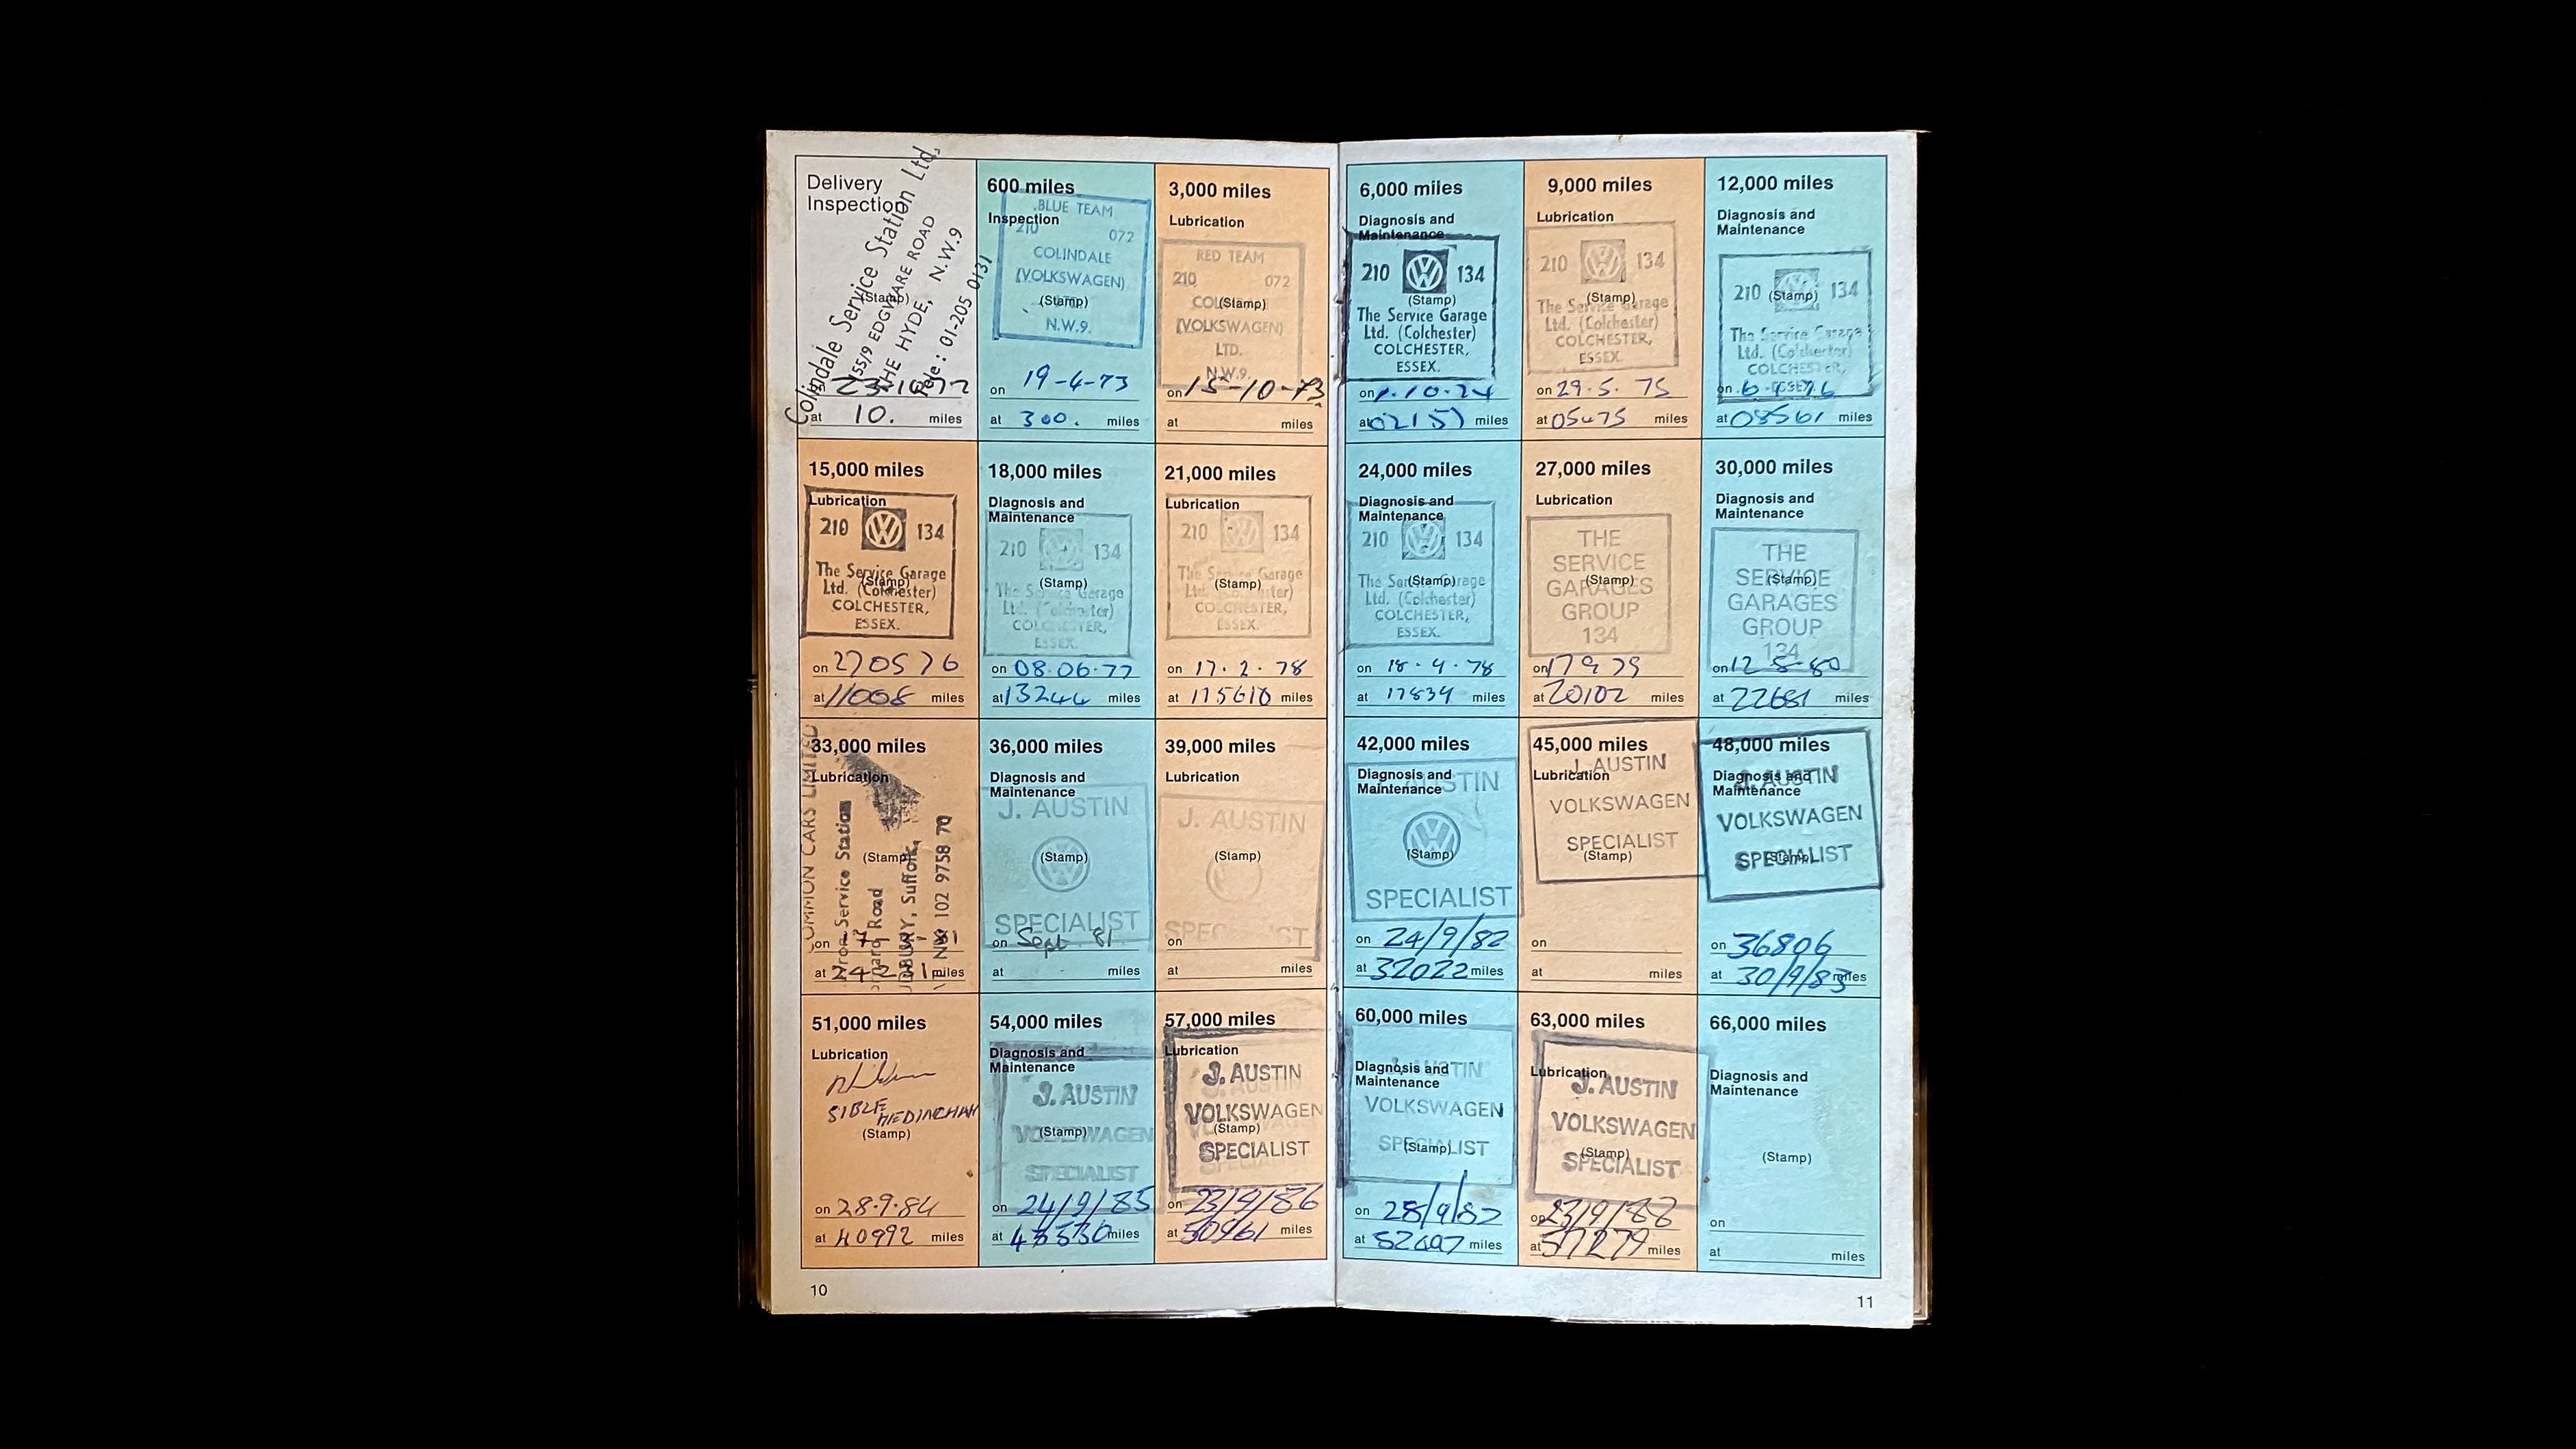 Delivery
Inspection
Colindale Service Station Ltd,
155/9 EDGWARE ROAD
THE HYDE, N.W.9
Tele: 01-205 0131
(Stamp)
at 10. miles
600 miles
Inspection
BLUE TEAM
210 072
COLINDALE
(VOLKSWAGEN)
(Stamp)
N.W.9.
on 19-4-73
at 300. miles
3,000 miles
Lubrication
RED TEAM
210 072
(Stamp)
(VOLKSWAGEN)
LTD.
N.W.9.
on 15-10-73
at miles
6,000 miles
Diagnosis and
Maintenance
210 134
(Stamp)
The Service Garage
Ltd. (Colchester)
COLCHESTER,
ESSEX.
on 1.10.74
at 02151 miles
9,000 miles
Lubrication
210 134
(Stamp)
The Service Garage
Ltd. (Colchester)
COLCHESTER,
ESSEX.
on 29.5.75
at 05475 miles
12,000 miles
Diagnosis and
Maintenance
210 (Stamp) 134
The Service Garage
Ltd. (Colchester)
COLCHESTER,
ESSEX.
on
at 08561 miles
15,000 miles
Lubrication
210 134
The Service Garage
(Stamp)
Ltd. (Colchester)
COLCHESTER,
ESSEX.
on 270576
at 11008 miles
18,000 miles
Diagnosis and
Maintenance
210 134
(Stamp)
The Service Garage
Ltd. (Colchester)
COLCHESTER,
ESSEX.
on 08.06.77
at 13244 miles
21,000 miles
Lubrication
210 134
The Service Garage
(Stamp)
Ltd. (Colchester)
COLCHESTER,
ESSEX.
on 17.2.78
at miles
24,000 miles
Diagnosis and
Maintenance
210 134
The Service Garage
(Stamp)
Ltd. (Colchester)
COLCHESTER,
ESSEX.
on 18.4.78
at 17834 miles
27,000 miles
Lubrication
THE
SERVICE
(Stamp)
GARAGES
GROUP
134
on 17 9 79
at 20102 miles
30,000 miles
Diagnosis and
Maintenance
THE
SERVICE
(Stamp)
GARAGES
GROUP
134
on 12-8-80
at 22681 miles
33,000 miles
Lubrication
COMMON CARS LIMITED
Service Station
Road
SUDBURY, Suffolk,
102 9758 70
(Stamp)
on
at 24231 miles
36,000 miles
Diagnosis and
Maintenance
J. AUSTIN
(Stamp)
SPECIALIST
on Sept 81
at miles
39,000 miles
Lubrication
J. AUSTIN
(Stamp)
SPECIALIST
on
at miles
42,000 miles
Diagnosis and
Maintenance
AUSTIN
(Stamp)
SPECIALIST
on 24/9/82
at 32022 miles
45,000 miles
Lubrication
J. AUSTIN
VOLKSWAGEN
SPECIALIST
(Stamp)
on
at miles
48,000 miles
Diagnosis and
Maintenance
J. AUSTIN
VOLKSWAGEN
SPECIALIST
(Stamp)
on 36806
at 30/9/83 miles
51,000 miles
Lubrication
SIBLE
HEDINGHAM
(Stamp)
on 28.9.84
at 40992 miles
54,000 miles
Diagnosis and
Maintenance
J. AUSTIN
VOLKSWAGEN
(Stamp)
SPECIALIST
on 24/9/85
at miles
57,000 miles
Lubrication
J. AUSTIN
VOLKSWAGEN
(Stamp)
SPECIALIST
on 23/9/86
at 50961 miles
60,000 miles
Diagnosis and
Maintenance
J. AUSTIN
VOLKSWAGEN
SPECIALIST
(Stamp)
on 28/9/87
at miles
63,000 miles
Lubrication
J. AUSTIN
VOLKSWAGEN
(Stamp)
SPECIALIST
on 23/9/88
at 57279 miles
66,000 miles
Diagnosis and
Maintenance
(Stamp)
on
at miles
10
11